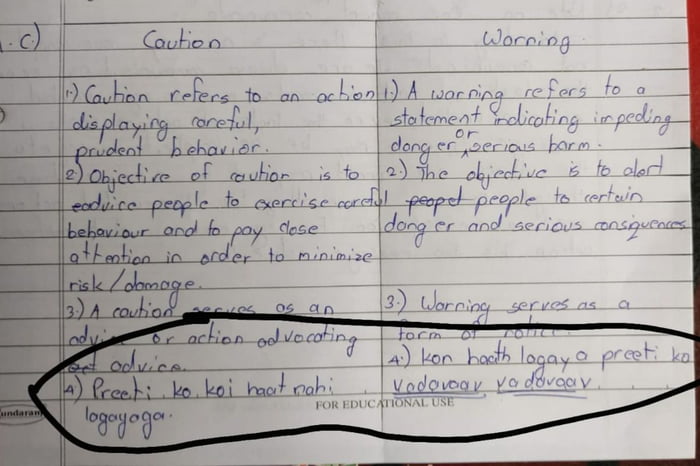 . c)
Caution
1.) Caution refers to an action
displaying careful,
prudent behavior.
2) Objective of caution is to
eadvice people to exercise careful
behaviour and to pay close
attention in order to minimize
risk/damage.
3.) A caution serves as an
advice or action advocating
advice.
4) Preeti ko koi haat nahi
lagayaga.
Warning
1.) A warning refers to a
statement indicating impeding
danger or serious harm.
2.) The objective is to alert
people to certain
danger and serious consiquences
3.) Warning serves as a
form of notice.
4.) Kon haath lagaya preeti ko
Vadavaav vadavaav.
undaram
FOR EDUCATIONAL USE